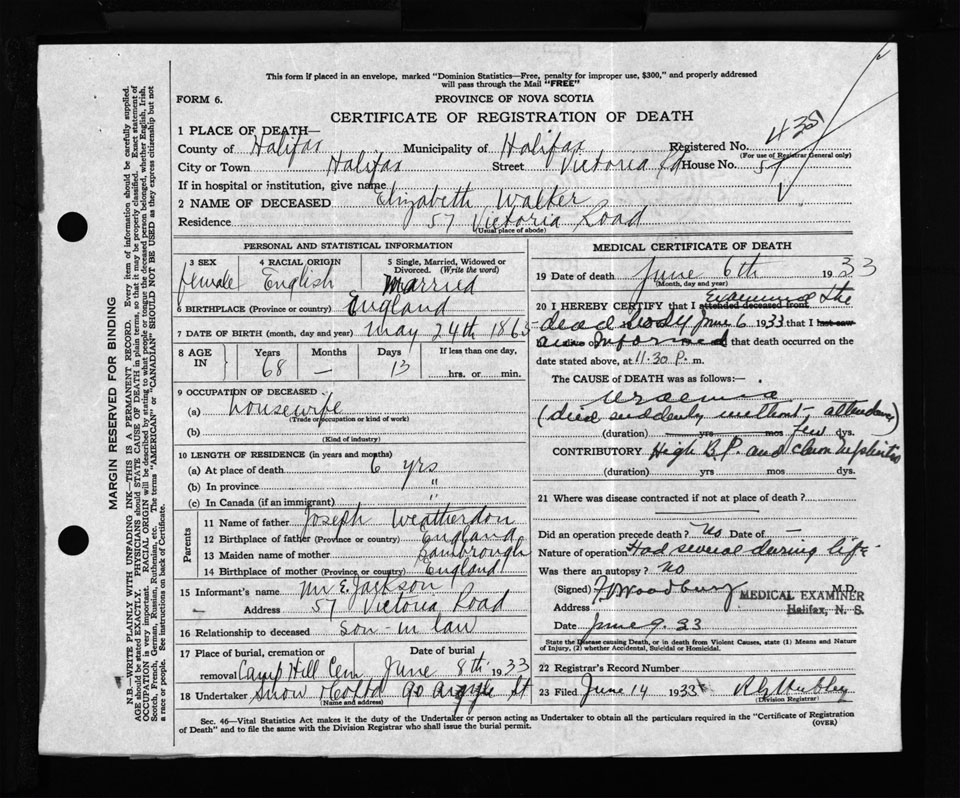 This form if placed in an envelope, marked "Dominion Statistics—Free, penalty for improper use, $300," and properly addressed
will pass through the Mail "FREE"
FORM 6.
PROVINCE OF NOVA SCOTIA
CERTIFICATE OF REGISTRATION OF DEATH
1 PLACE OF DEATH—
County of Halifax Municipality of Halifax Registered No.
(For use of Registrar General only)
City or Town Halifax Street Victoria Rd House No. 57
If in hospital or institution, give name
2 NAME OF DECEASED Elizabeth Walker
Residence 57 Victoria Road
(Usual place of abode)
PERSONAL AND STATISTICAL INFORMATION
3 SEX 4 RACIAL ORIGIN 5 Single, Married, Widowed or
Divorced. (Write the word)
female English Married
6 BIRTHPLACE (Province or country) England
7 DATE OF BIRTH (month, day and year) May 24th 1865
8 AGE IN Years Months Days If less than one day,
68 — 13 hrs. or min.
9 OCCUPATION OF DECEASED
(a) housewife
(Trade occupation or kind of work)
(b)
(Kind of industry)
10 LENGTH OF RESIDENCE (in years and months)
(a) At place of death 6 yrs
(b) In province "
(c) In Canada (if an immigrant) "
Parents
11 Name of father Joseph Weatherdon
12 Birthplace of father (Province or country) England
13 Maiden name of mother
14 Birthplace of mother (Province or country) England
15 Informant's name Mr E. Jackson
Address 57 Victoria Road
16 Relationship to deceased son-in law
17 Place of burial, cremation or Date of burial
removal Camp Hill Cem June 8th 1933
18 Undertaker Snow & Co Ltd 90 Argyle St
(Name and address)
MEDICAL CERTIFICATE OF DEATH
19 Date of death June 6th 1933
(Month, day and year)
20 I HEREBY CERTIFY that I attended deceased from examined the
dead body June 6 1933 that I last saw
am informed that death occurred on the
date stated above, at 11.30 P. m.
The CAUSE of DEATH was as follows:—
Uraemia
(died suddenly without attendance)
(duration) yrs mos few dys.
CONTRIBUTORY High B.P. and chron Nephritis
(duration) yrs mos dys.
21 Where was disease contracted if not at place of death?
Did an operation precede death? No Date of —
Nature of operation Had several during life
Was there an autopsy? No
(Signed) Woodbury M.D.
MEDICAL EXAMINER
Address Halifax, N. S.
Date June 9. 33
State the Disease causing Death, or in death from Violent Causes, state (1) Means and Nature
of Injury, (2) whether Accidental, Suicidal or Homicidal.
22 Registrar's Record Number
23 Filed June 14 1933
Division Registrar)
Sec. 46—Vital Statistics Act makes it the duty of the Undertaker or person acting as Undertaker to obtain all the particulars required in the "Certificate of Registration
of Death" and to file the same with the Division Registrar who shall issue the burial permit. (OVER)
MARGIN RESERVED FOR BINDING
N.B.—WRITE PLAINLY WITH UNFADING INK—THIS IS A PERMANENT RECORD. Every item of information should be carefully supplied.
AGE should be stated EXACTLY. PHYSICIANS should STATE CAUSE OF DEATH in plain terms, so that it may be properly classified. Exact statement of
OCCUPATION is very important. RACIAL ORIGIN will be described by stating to what people or tongue the deceased person belonged, whether English, Irish,
Scotch, French, German, Russian, Ruthenian, etc. The terms "AMERICAN" or "CANADIAN" SHOULD NOT BE USED as they express citizenship but not
a race or people. See instructions on back of Certificate.